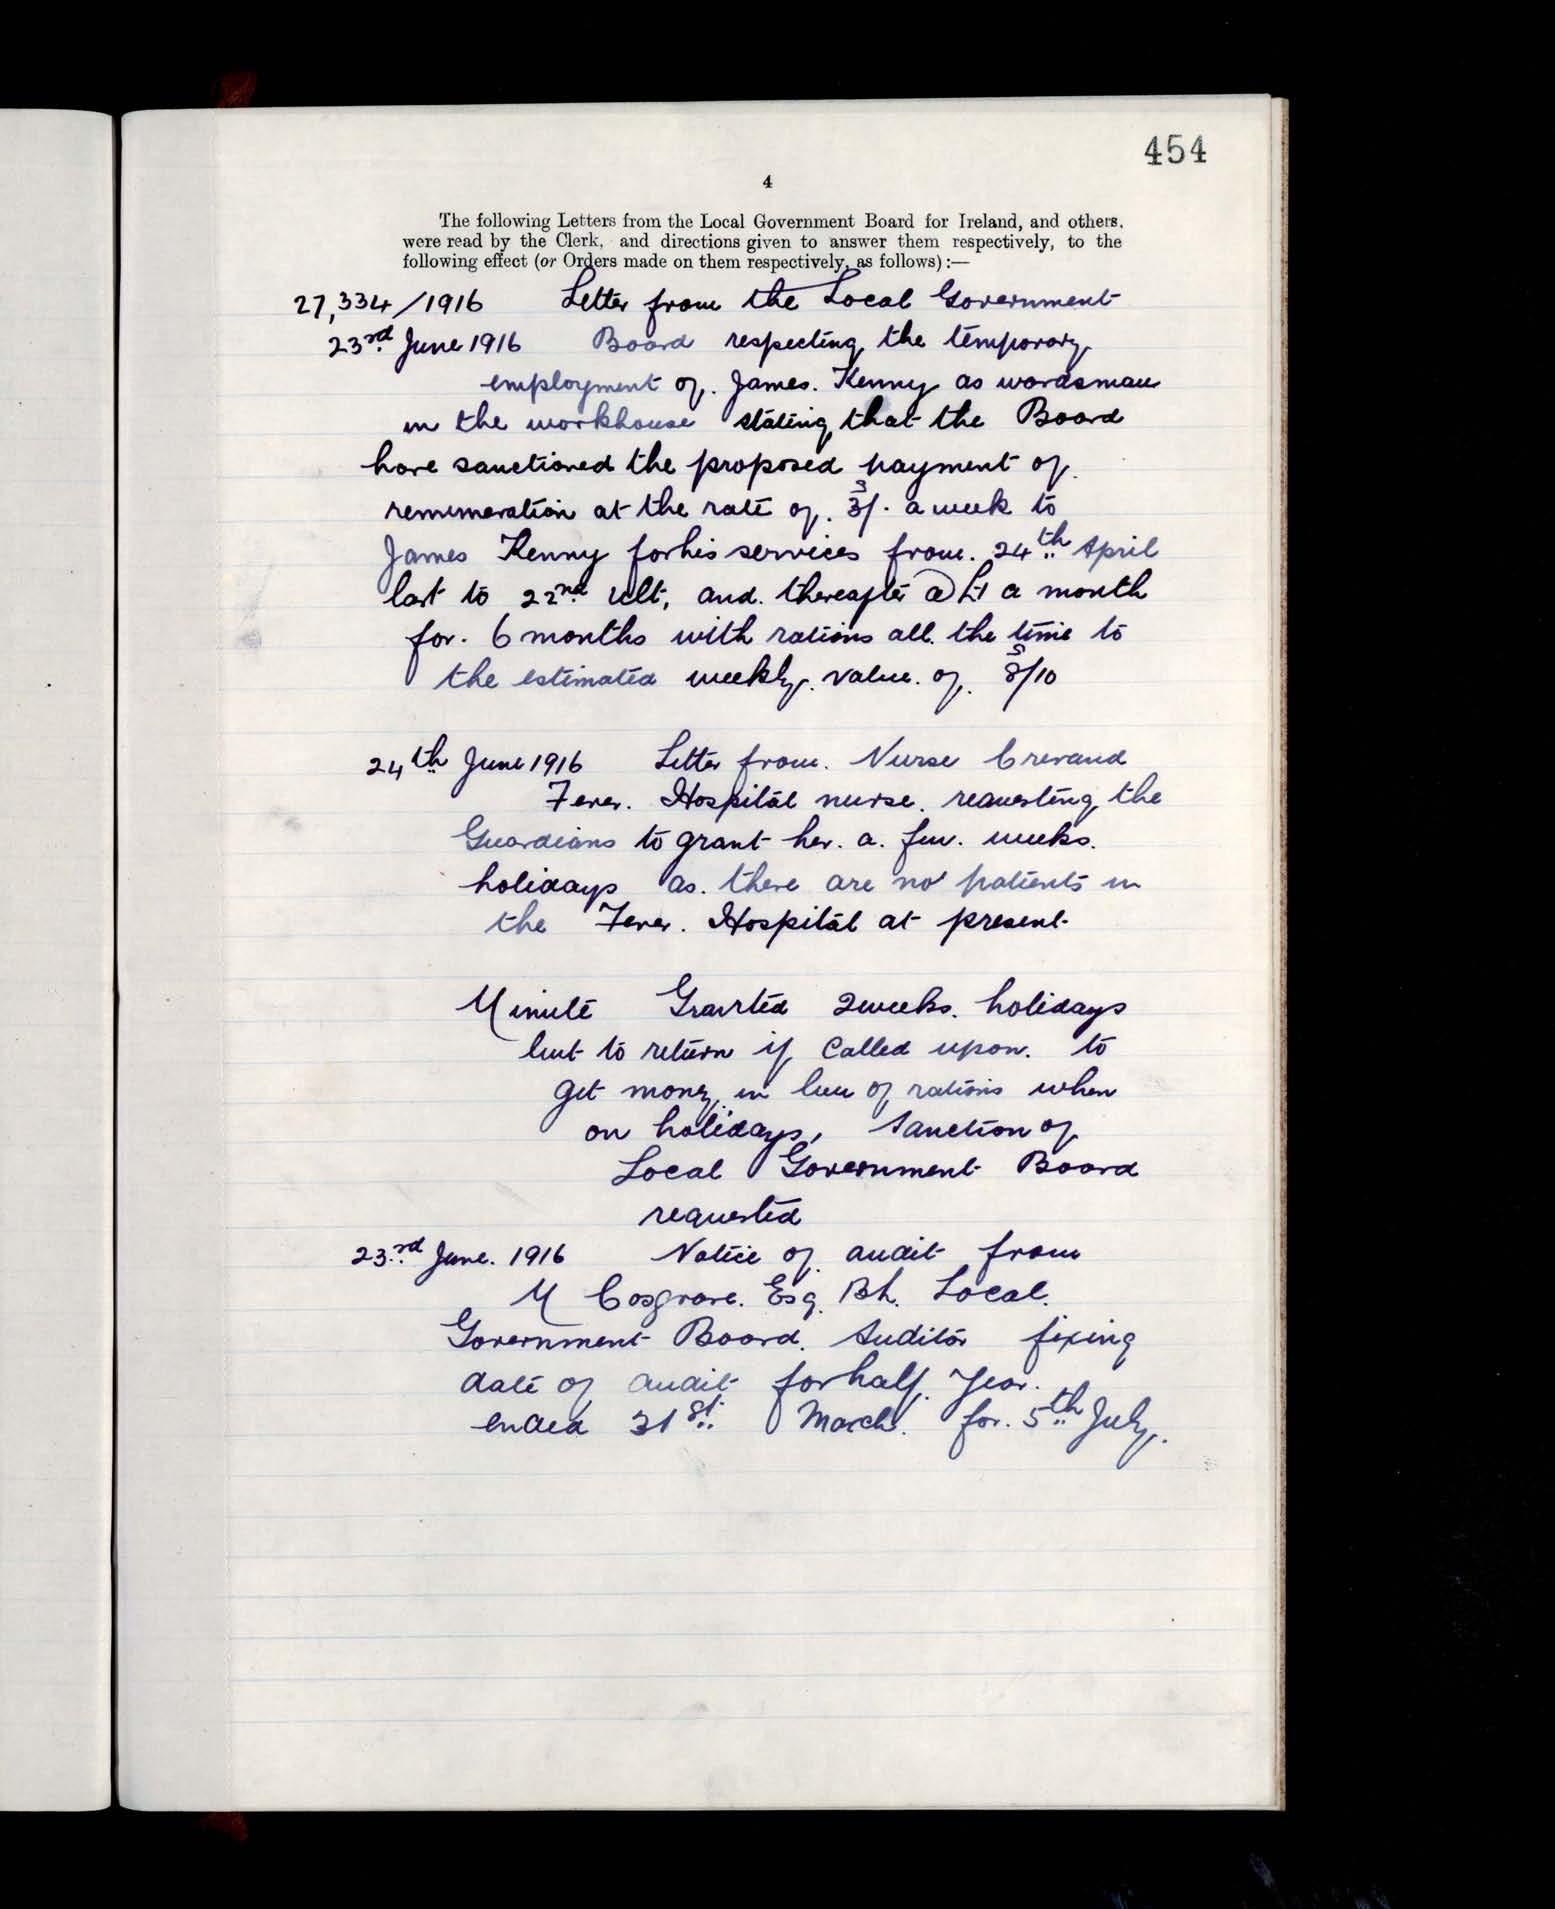 454
4
The following Letters from the Local Government Board for Ireland, and others,
were read by the Clerk, and directions given to answer them respectively, to the
following effect (or Orders made on them respectively, as follows) :—
27,334/1916 Letter from the Local Government
23rd June 1916 Board respecting the temporary
employment of James Kenny as wardsman
in the workhouse stating that the Board
have sanctioned the proposed payment of
remuneration at the rate of 3s/- a week to
James Kenny for his services from 24th April
last to 22nd ult, and thereafter @ £1 a month
for 6 months with rations all the time to
the estimated weekly value of 8s/10
24th June 1916 Letter from Nurse
Fever Hospital nurse requesting the
Guardians to grant her a few weeks
holidays as there are no patients in
the Fever Hospital at present
Minute Granted 2 weeks holidays
but to return if called upon to
get money in lieu of rations when
on holidays, Sanction of
Local Government Board
requested
23rd June 1916 Notice of audit from
M Cosgrave Esq Local
Government Board Auditor fixing
date of audit for half year
ended 31st March for 5th July.